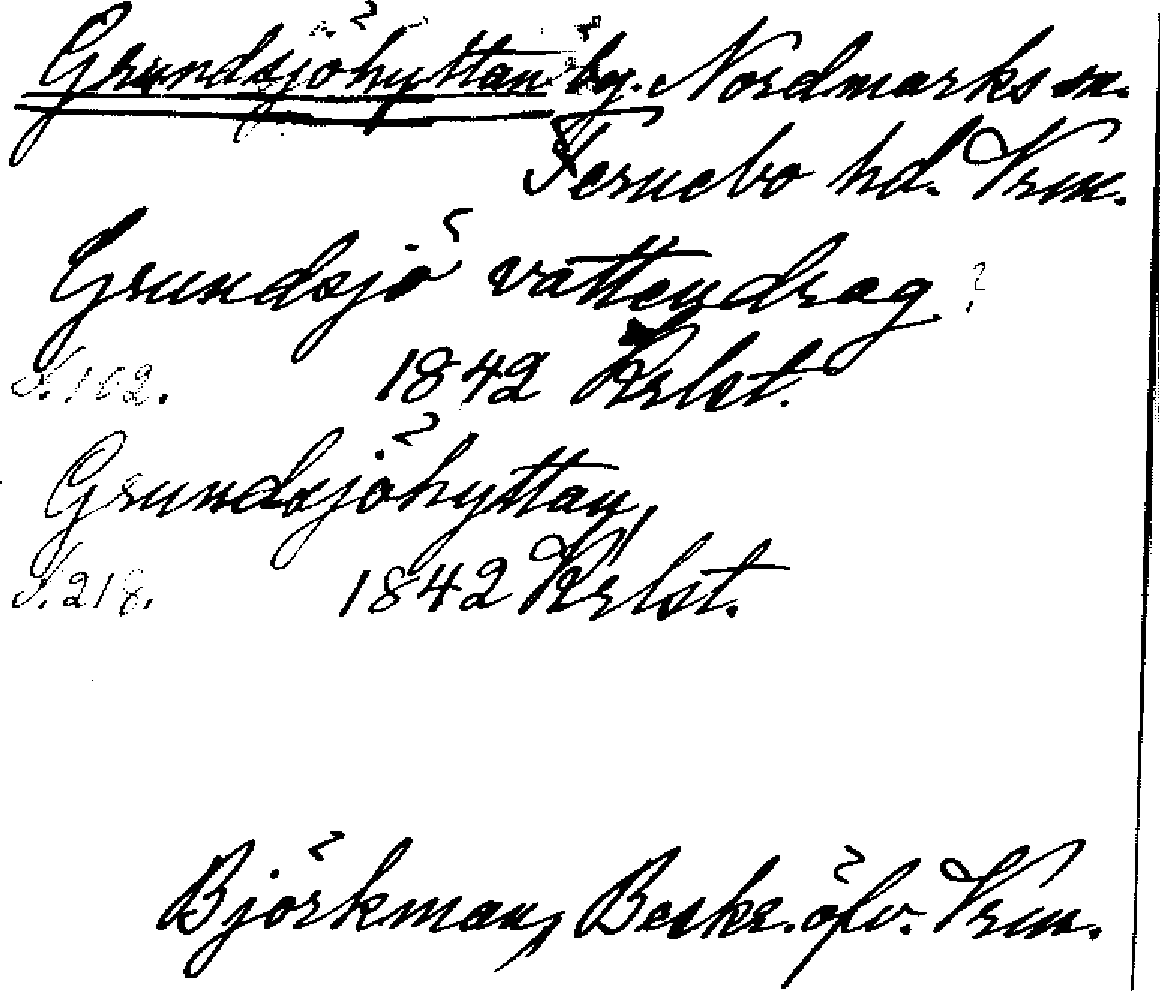 Grundsjöhyttan by. Nordmarks sn.
Fernebo hd. Vrm.
Grundsjö vattendrag?
S. 162. 1842 Krlst.
Grundsjöhyttan,
S. 218. 1842 Krlst.
Björkman, Beskr. öfv. Vrm.